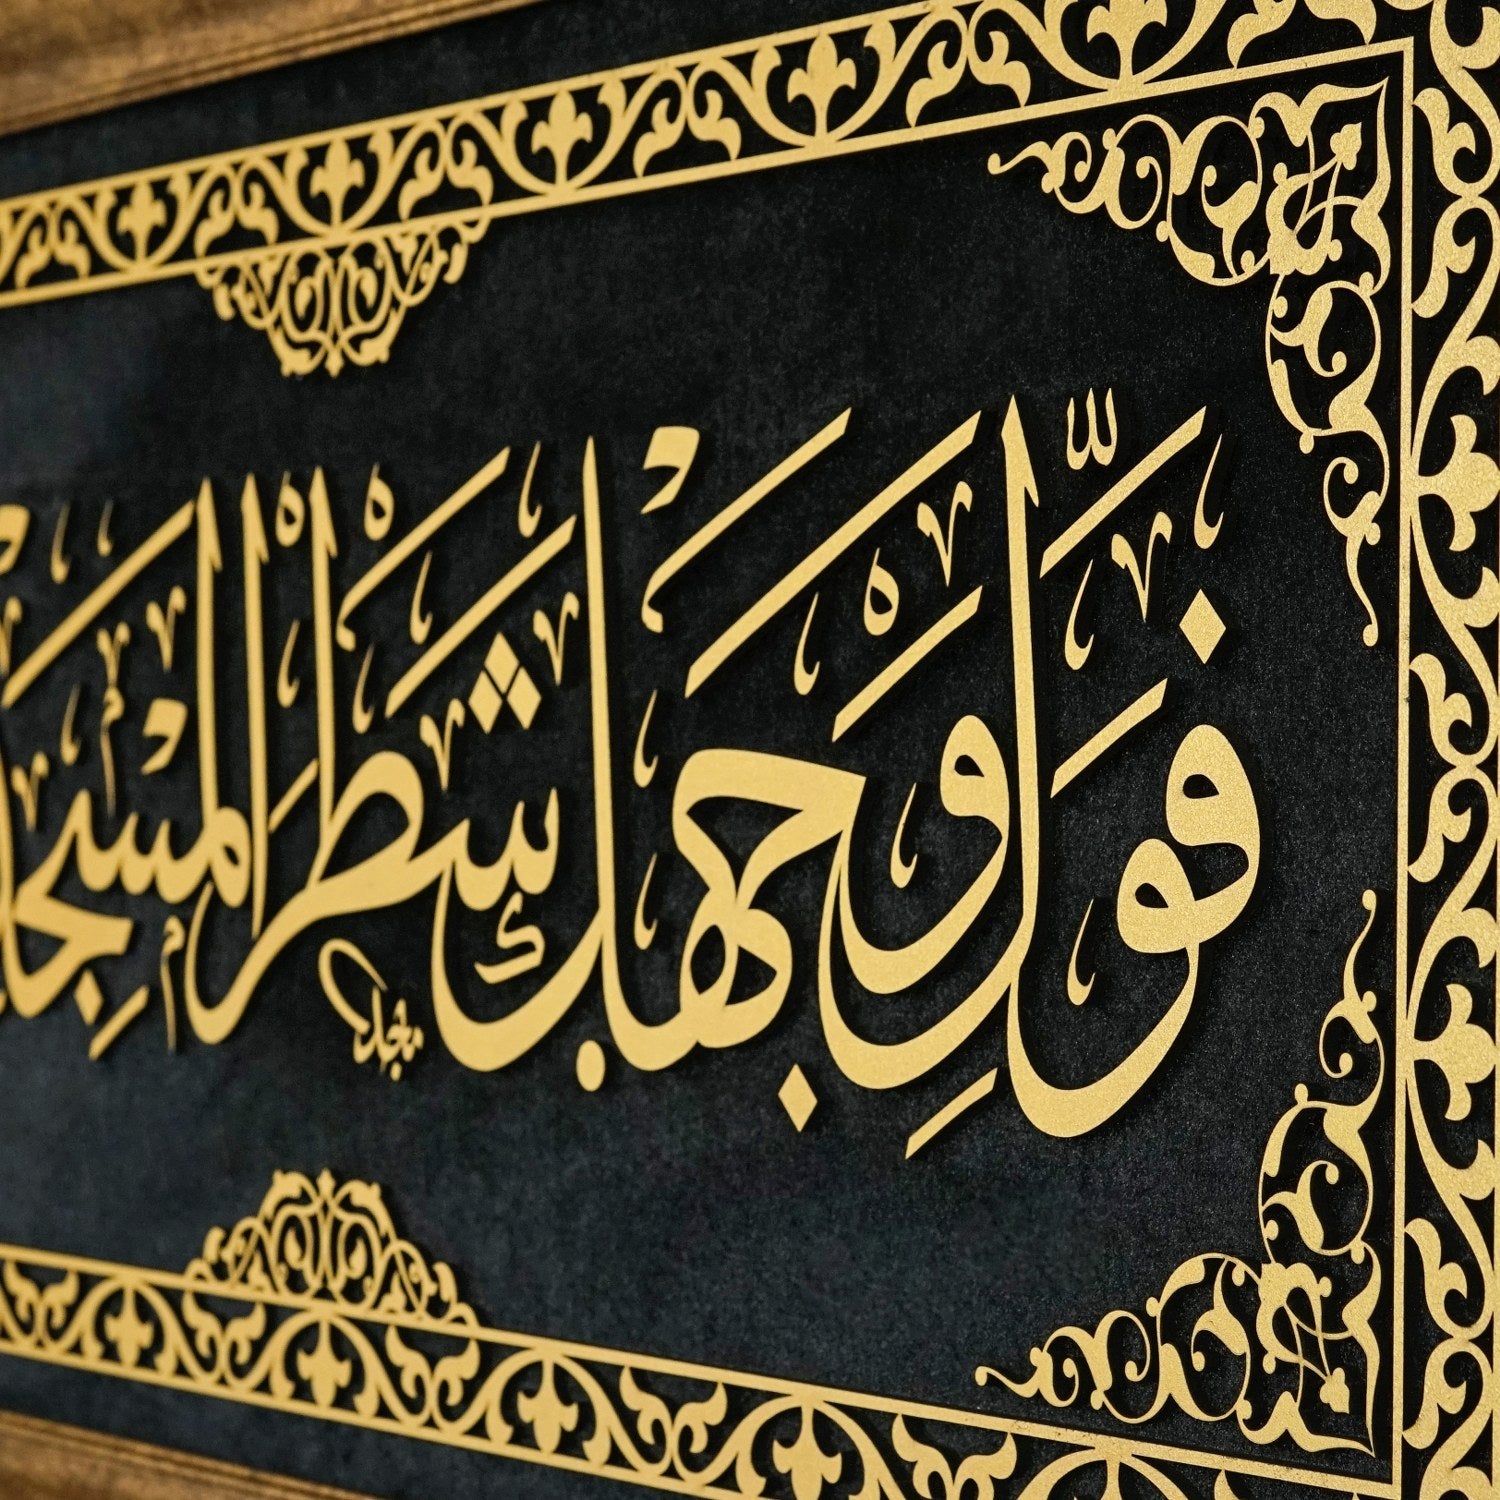 فَوَلِّ وَجْهَكَ شَطْرَ الْمَسْجِدِ